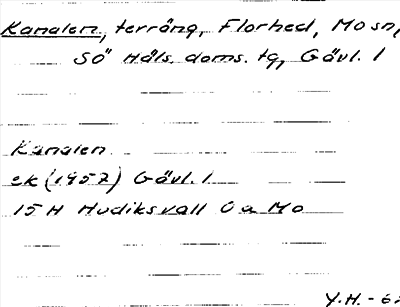 Kanalen, terräng, Florhed, Mo sn,
Sö Häls. doms. tg, Gävl. l
Kanalen
ek (1957) Gävl. l
15H Hudiksvall 0a Mo
Y.H. - 62